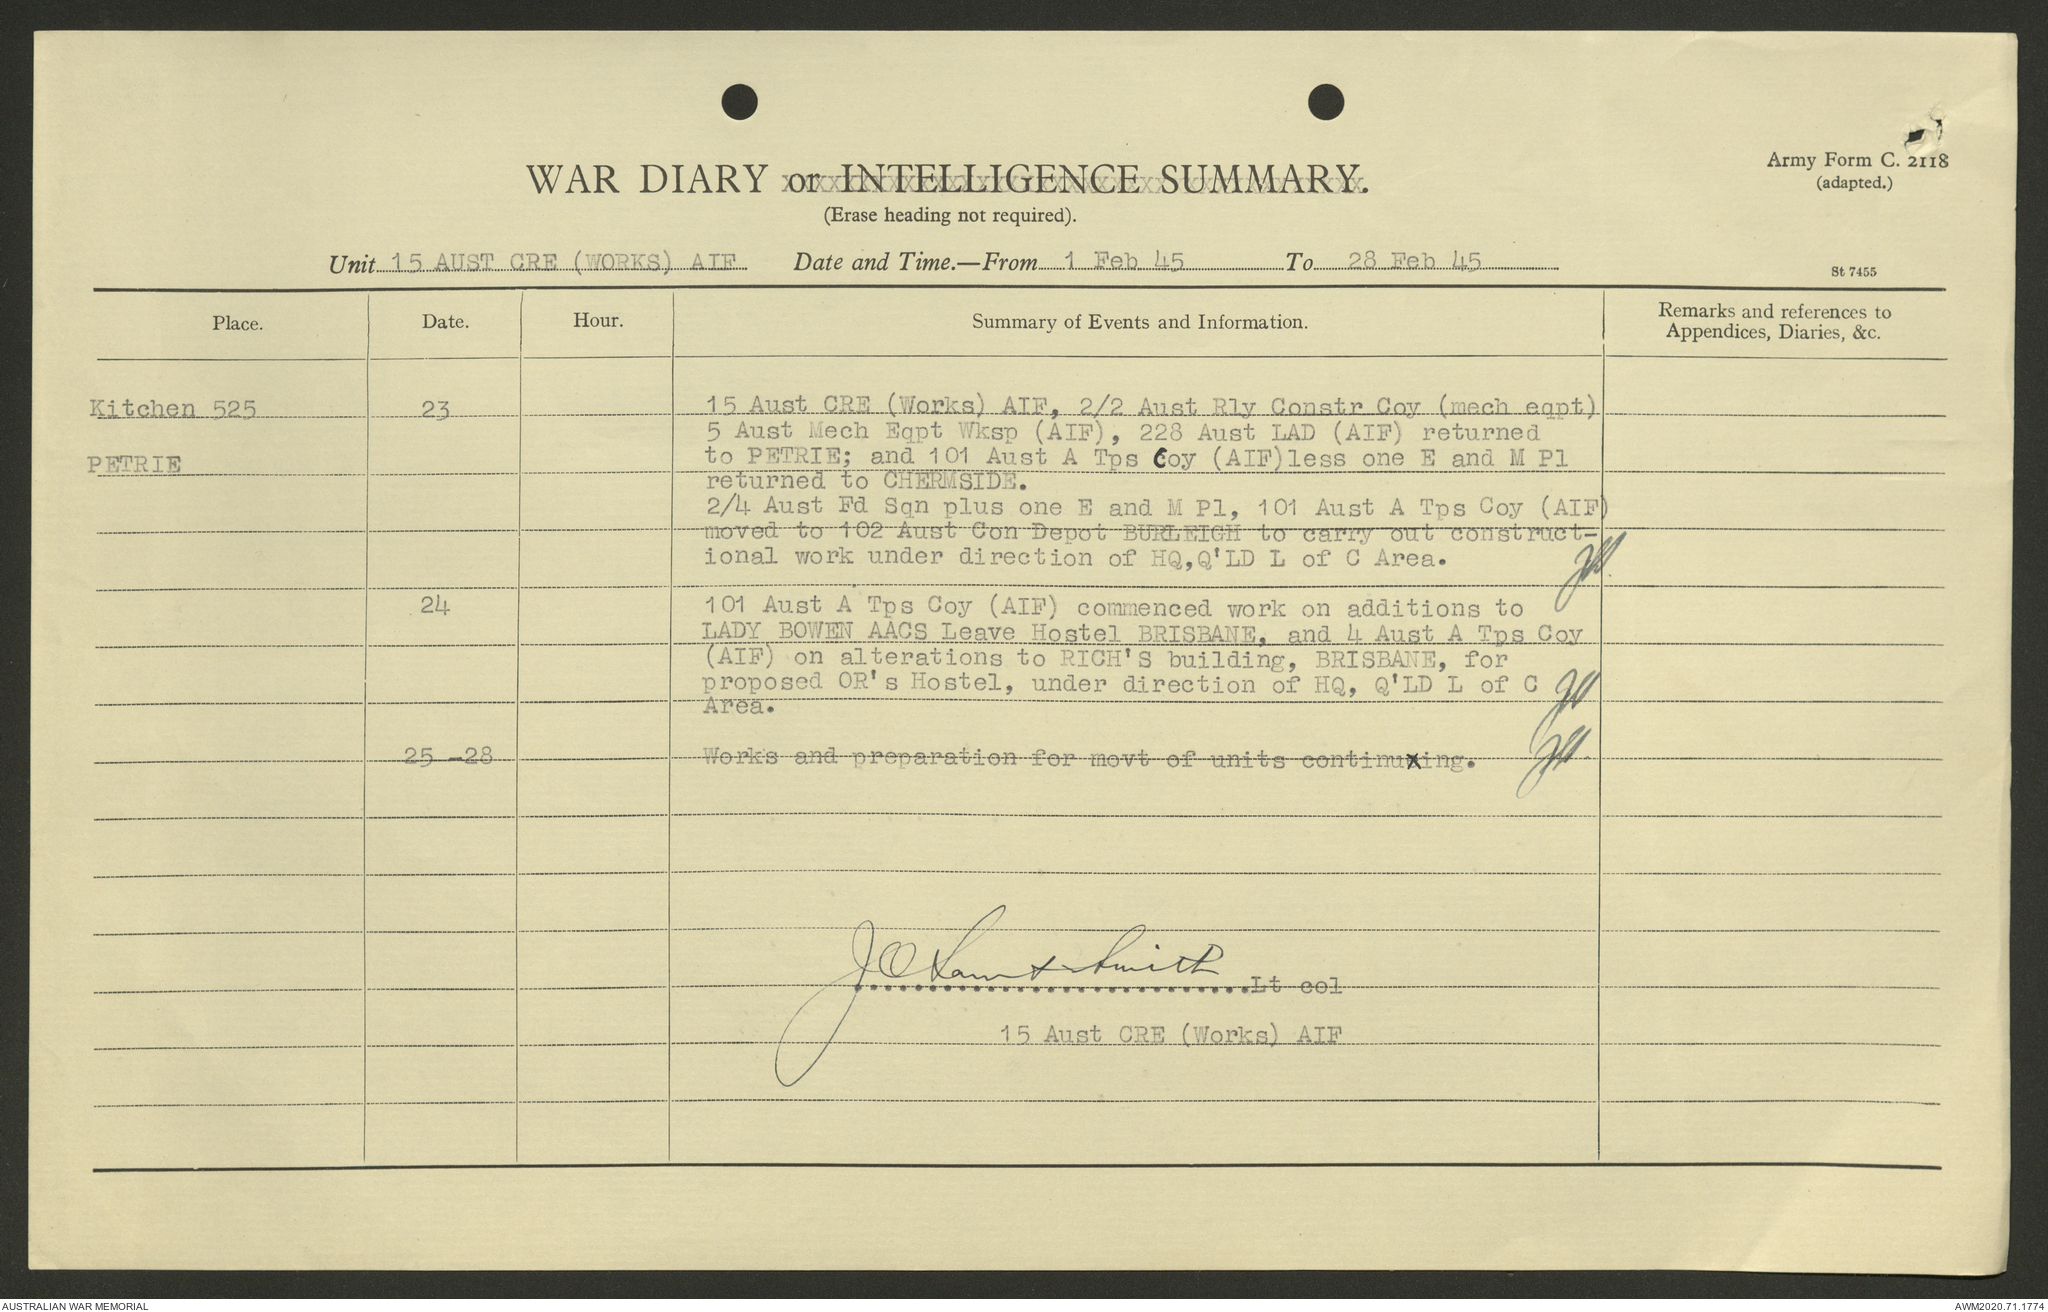 Army Form C. 2118
(adapted.)
WAR DIARY or INTELLIGENCE SUMMARY.
(Erase heading not required).
Unit 15 AUST CRE (WORKS) AIF Date and Time.—From 1 Feb 45 To 28 Feb 45
St 7455
Place. Date. Hour. Summary of Events and Information. Remarks and references to
Appendices, Diaries, &c.
Kitchen 525 23 15 Aust CRE (Works) AIF, 2/2 Aust Rly Constr Coy (mech eqpt)
5 Aust Mech Eqpt Wksp (AIF), 228 Aust LAD (AIF) returned
PETRIE to PETRIE; and 101 Aust A Tps Coy (AIF)less one E and M Pl
returned to CHERMSIDE.
2/4 Aust Fd Sqn plus one E and M Pl, 101 Aust A Tps Coy (AIF)
moved to 102 Aust Con Depot BURLEIGH to carry out construct-
ional work under direction of HQ,Q'LD L of C Area.
24 101 Aust A Tps Coy (AIF) commenced work on additions to
LADY BOWEN AACS Leave Hostel BRISBANE, and 4 Aust A Tps Coy
(AIF) on alterations to RICH'S building, BRISBANE, for
proposed OR's Hostel, under direction of HQ, Q'LD L of C
Area.
25 -28 Works and preparation for movt of units continuxing.
Smith Lt col
15 Aust CRE (Works) AIF
AUSTRALIAN WAR MEMORIAL AWM2020.71.1774